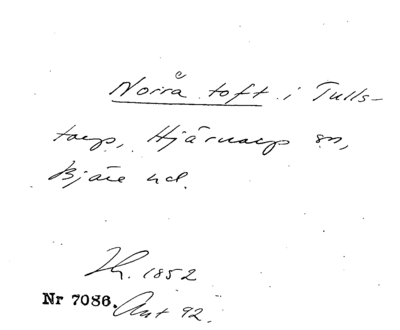 Norrå toft i Tulls-
torp, Hjärnarp sn,
Bjäre hd.
Th. 1852
Nr 7086. Ant 92.